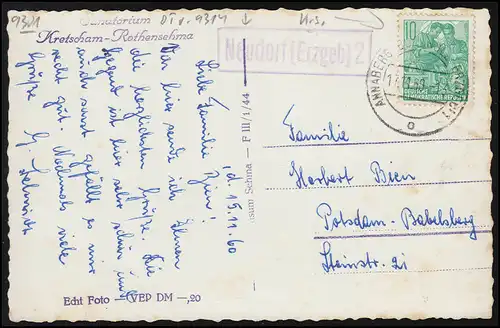 9301
Sanatorium
Kretscham-Rothensehma
Neudorf (Erzgeb) 2
10
DEUTSCHE
DEMOKRATISCHE REPUBLIK
ANNABERG
d. 15.11.60
Liebe Familie
Bien!
Von hier sende ich Ihnen
die herzlichsten Grüße. Die
Gegend ist hier sehr schön und
auch sonst gefällt es mir
recht gut. Nochmals viele
Grüße
Echt Foto — VEP DM —,20
sum Sehma — F III/1/44
Familie
Herbert Bien
Potsdam-Babelsberg
Steinstr. 21